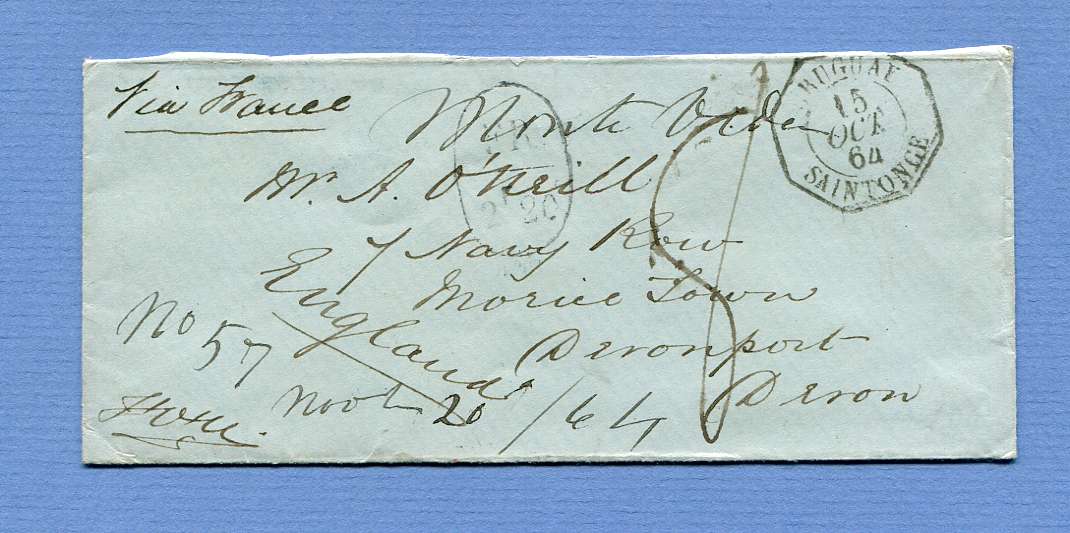 Via France
Monte Video
URUGUAY
15
OCT
64
SAINTONGE
Mr. A. O'Neill
7 Navy Row
Morice Town
Devonport
Devon
England
No 57
Nov 20/64